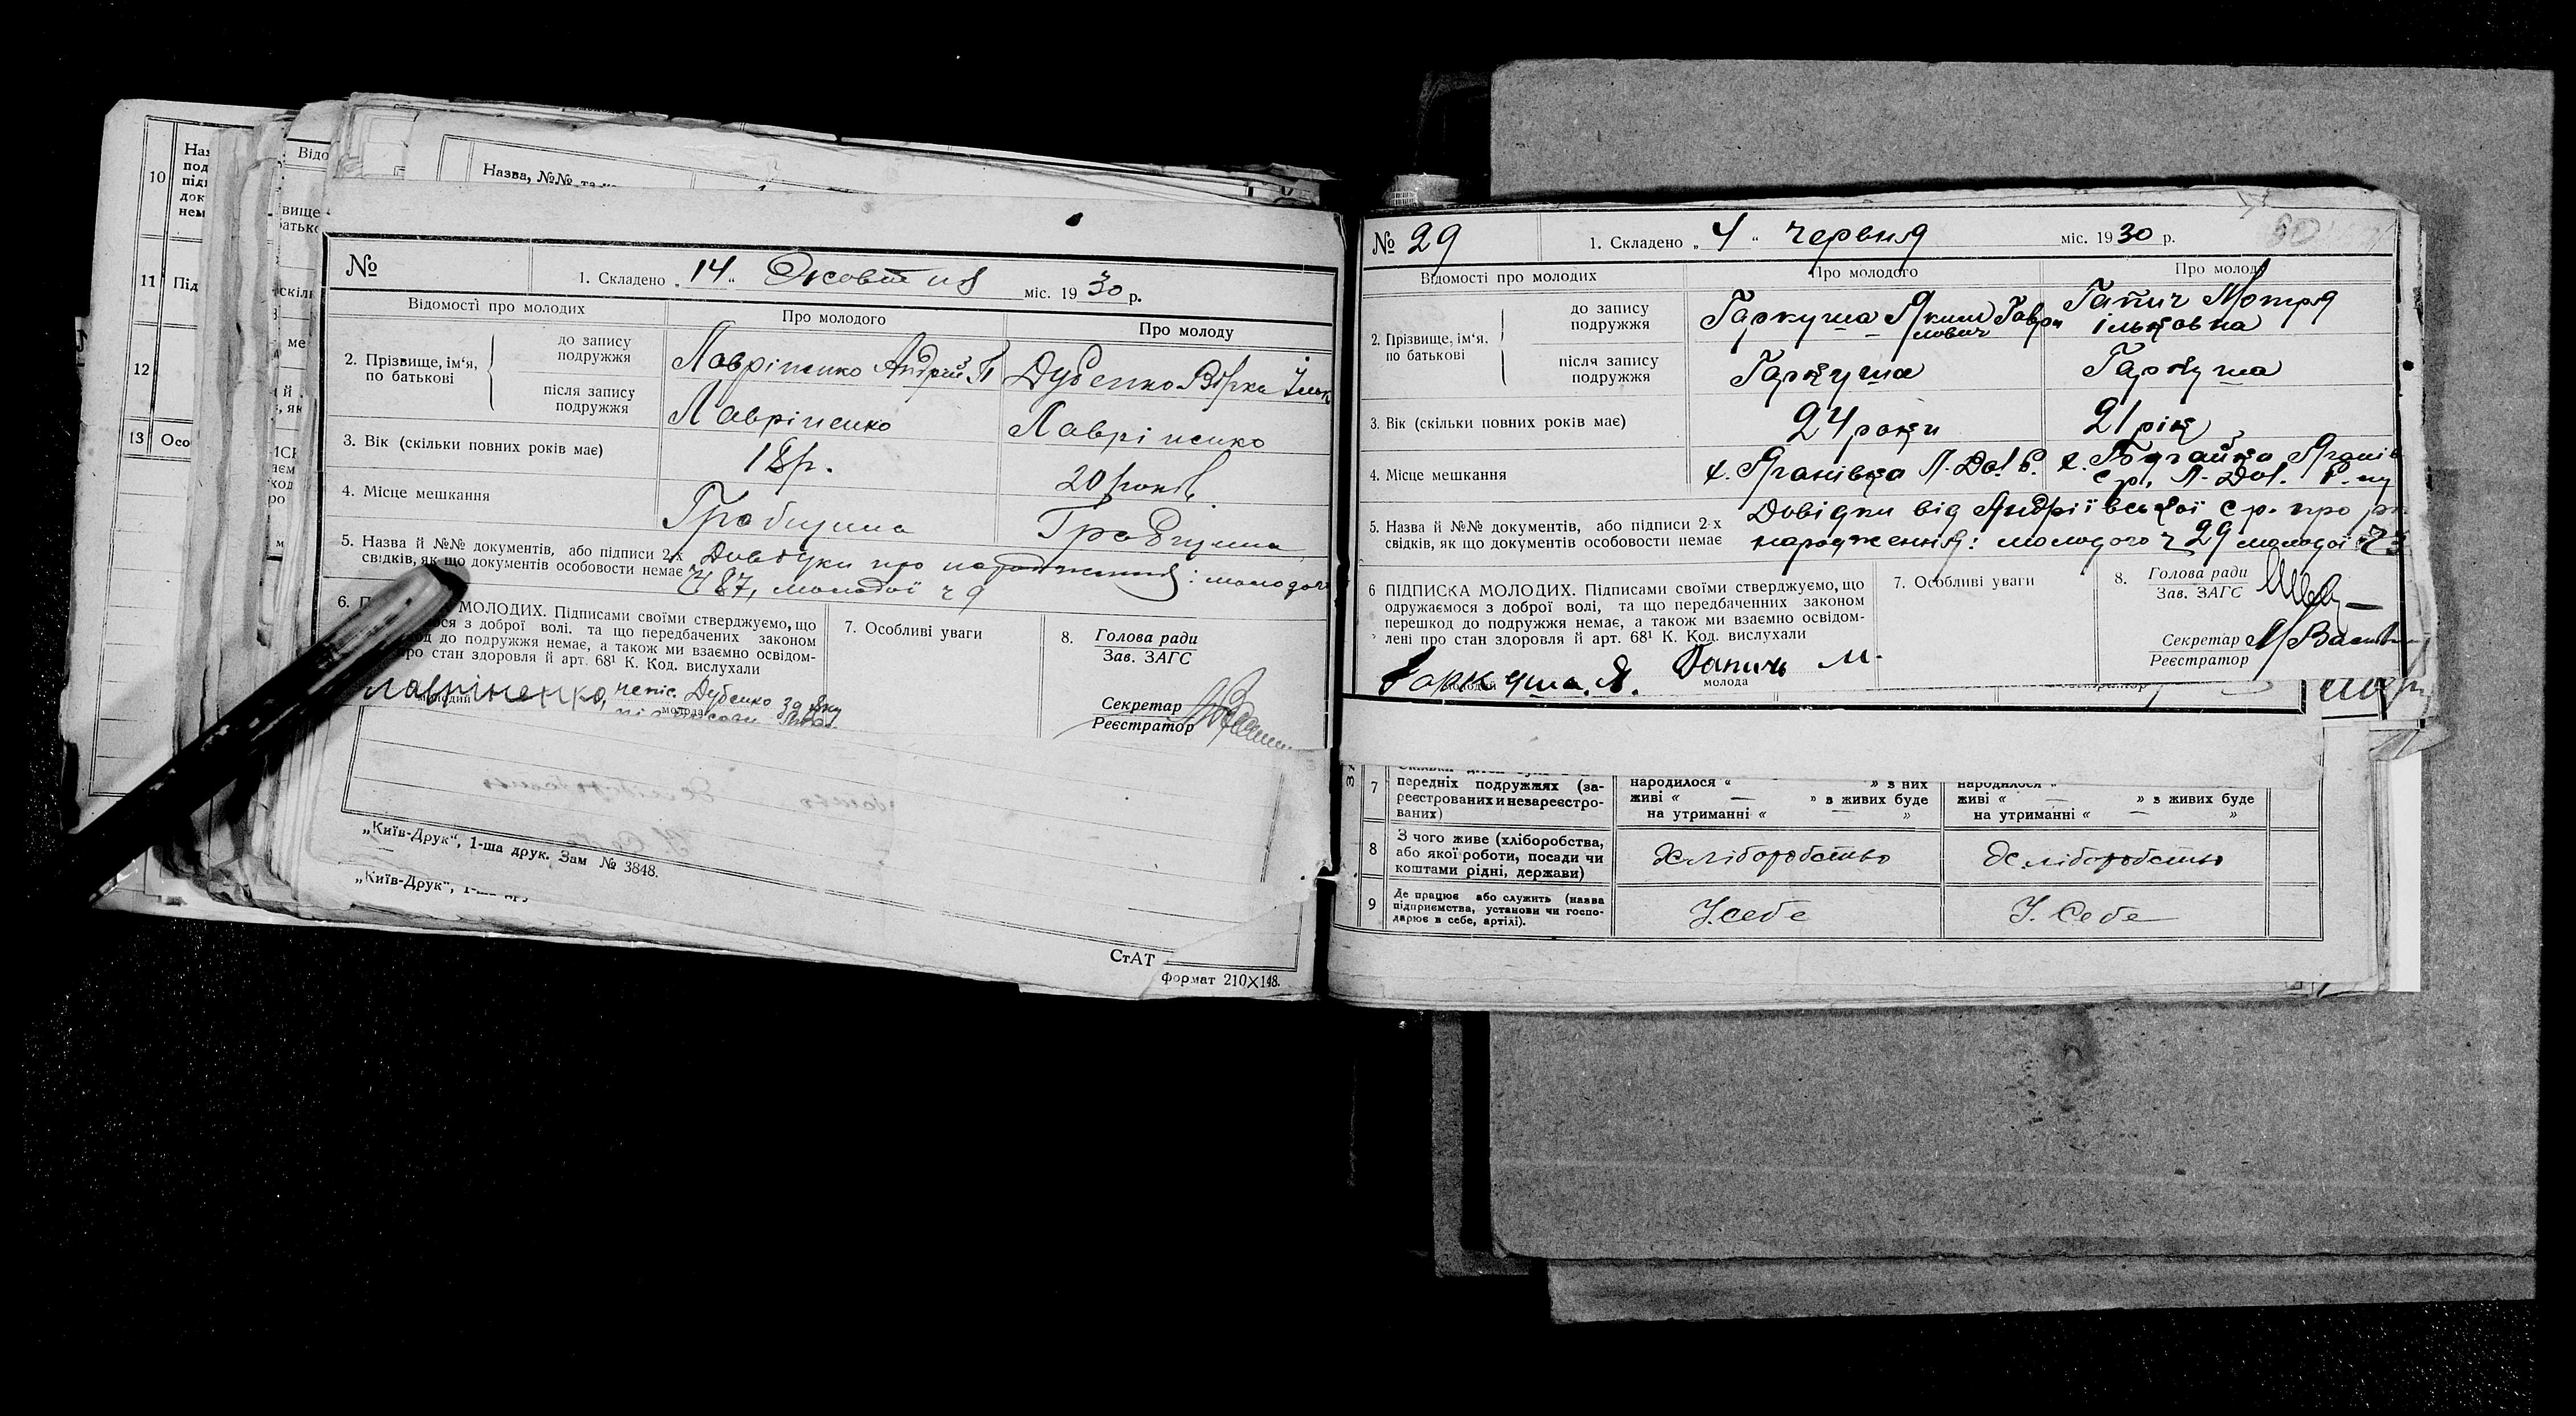 10
11 Під
12
13 Осо
Назва, №№
№
1. Складено „ 14 “ Жовтня міс. 1930 р.
Відомості про молодих
Про молодого
Про молоду
2. Прізвище, ім‘я, по батькові
до запису подружжя
Лавріненко Андрій П
Дубенко Вірка Ільк
після запису подружжя
Лавріненко
Лавріненко
3. Вік (скільки повних років має)
18 р.
20 років
4. Місце мешкання
5. Назва й №№ документів, або підписи 2-х
свідків, як що документів особовости немає
Довідки про народження: молодого
ч 87, молодої ч 9
6.
МОЛОДИХ. Підписами своїми стверджуємо, що
з доброї волі. та що передбачених законом
до подружжя немає, а також ми взаємно освідом-
про стан здоровля й арт. 68¹ К. Код. вислухали
Лавріненко, непис. Дубенко
молодий
молода
7. Особливі уваги
8. Голова ради
Зав. ЗАГС
Секретар
Реєстратор
„Київ-Друк“, 1-ша друк. Зам № 3848.
„Київ-Друк“,
СтАТ
формат 210×148.
№ 29
1. Складено „ 4 “ червня міс. 1930 р.
Відомості про молодих
Про молодого
Про молоду
2. Прізвище, ім‘я, по батькові
до запису подружжя
Гаркуша Яким Гаври
лович
Гапич Мотря
Ільковна
після запису подружжя
Гаркуша
Гаркуша
3. Вік (скільки повних років має)
24 роки
21 рік
4. Місце мешкання
х. Яганівка
5. Назва й №№ документів, або підписи 2-х
свідків, як що документів особовости немає
Довідки від Андріївської с р. про
народження: молодого ч 29 молодої
6 ПІДПИСКА МОЛОДИХ. Підписами своїми стверджуємо, що
одружаємося з доброї волі, та що передбаченних законом
перешкод до подружжя немає, а також ми взаємно освідом-
лені про стан здоровля й арт. 68¹ К. Код. вислухали
Гаркуша. Я. Гапичь М.
молодий
молода
7. Особливі уваги
8. Голова ради
Зав. ЗАГС
Секретар
Реєстратор
7
передніх подружжях (за-
реєстрованих и незареєстро-
ваних)
народилося “ » з них
живі « — » з живих буде
на утриманні « — »
живі « — » з живих буде
на утриманні « — »
8
З чого живе (хліборобства,
або якої роботи, посади чи
коштами рідні, держави)
Хліборобство
Хліборобство
9
Де працює або служить (назва
підприємства, установи чи госпо-
дарює в себе, артілі).
У себе
У Себе